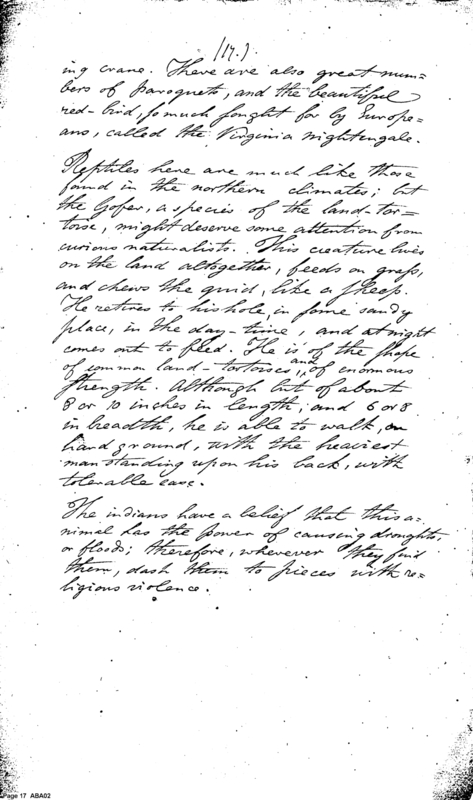 (17.)
ing crane. There are also great num=
bers of paroquets, and the beautiful
red-bird, so much sought for by Europe=
ans, called the Virginia nightengale.
Reptiles here are much like those
found in the northern climates; but
the Gofer, a species of the land-tor=
toise, might deserve some attention from
curious naturalists. This creature lives
on the land altogether, feeds on grass,
and chews the quid, like a sheep.
He retires to his hole, in some sandy
place, in the day-time, and at night
comes out to feed. He is of the shape
of common land-tortoises and of enormous
strength. Although but of about
8 or 10 inches in length, and 6 or 8
in breadth, he is able to walk, on
hard ground, with the heaviest
man standing upon his back, with
tolerable ease.
The indians have a belief that this a=
nimal has the power of causing droughts,
or floods; therefore, wherever they find
them, dash them to pieces with re=
ligious violence.
Page 17 ABA02